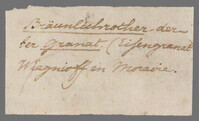 Bräunlichrother der-
ber Granat (Eisengranat
en Moravie.